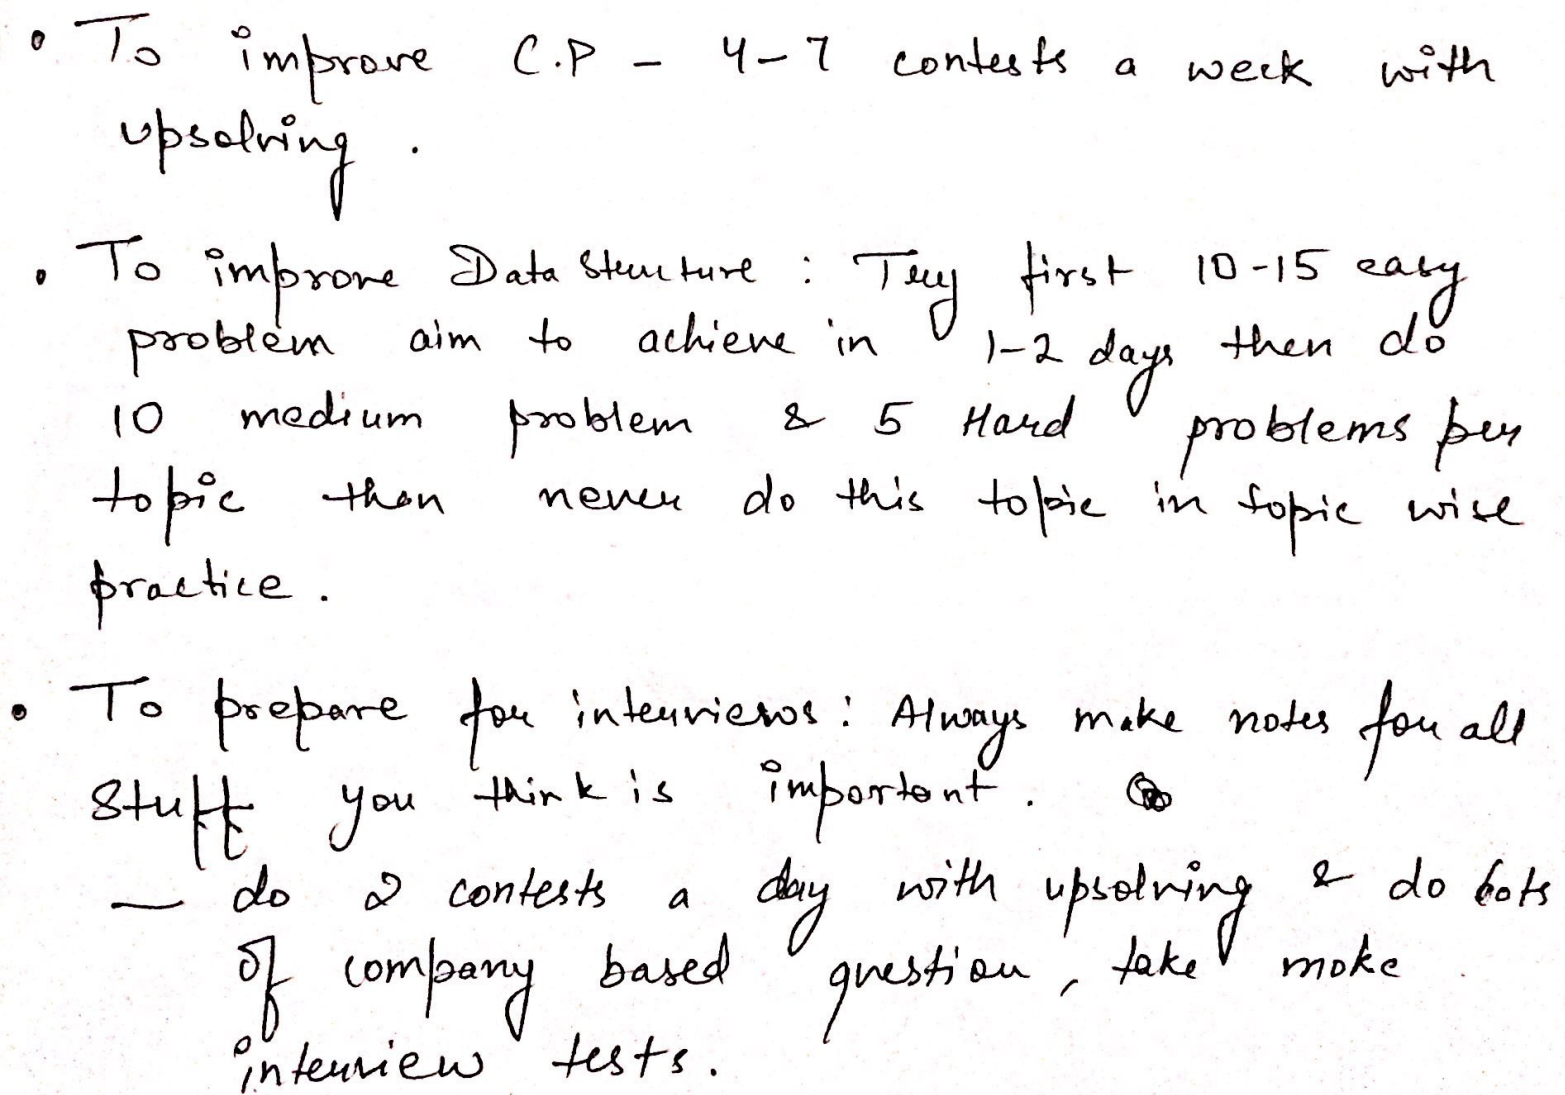 • To improve C.P - 4-7 contests a week with
upsolving .
• To improve Data Structure : Try first 10-15 easy
problem aim to achieve in 1-2 days then do
10 medium problem & 5 Hard problems per
topic then never do this topic in topic wise
practice .
• To prepare for interviews : Always make notes for all
stuff you think is important .
— do 2 contests a day with upsolving & do lots
of company based question , take moke
interview tests .